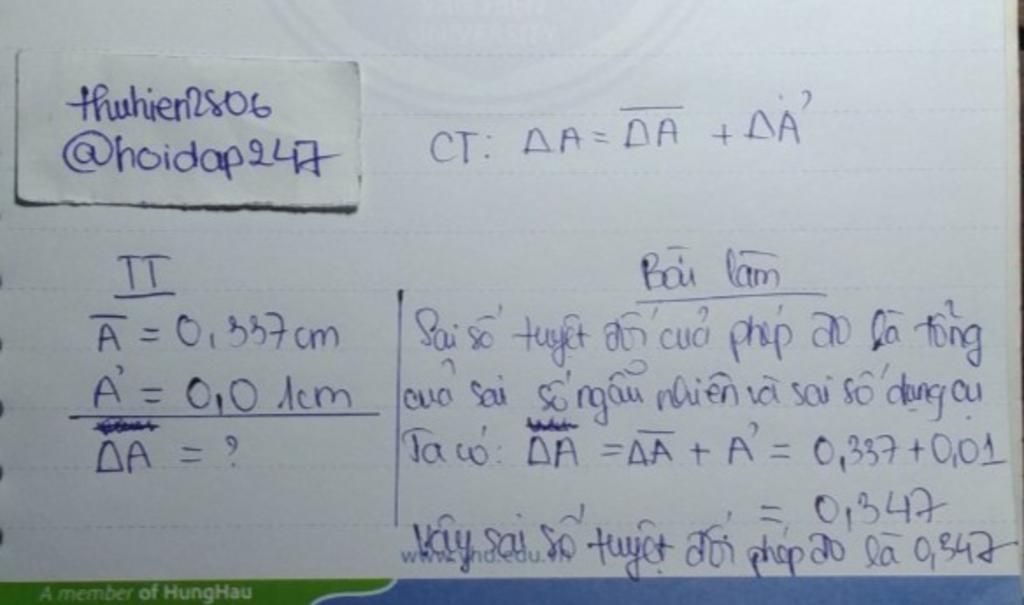 thuhien2806
@hoidap247
CT: ΔA = \overline{ΔA} + ΔA'
TT
\overline{A} = 0,337cm
A' = 0,01cm
ΔA = ?
Bài làm
Sai số tuyệt đối của phép đo là tổng
của sai số ngẫu nhiên và sai số dụng cụ
Ta có: ΔA = Δ\overline{A} + A' = 0,337+0,01
= 0,347
Vậy sai số tuyệt đối phép đo là 0,347
A member of HungHau